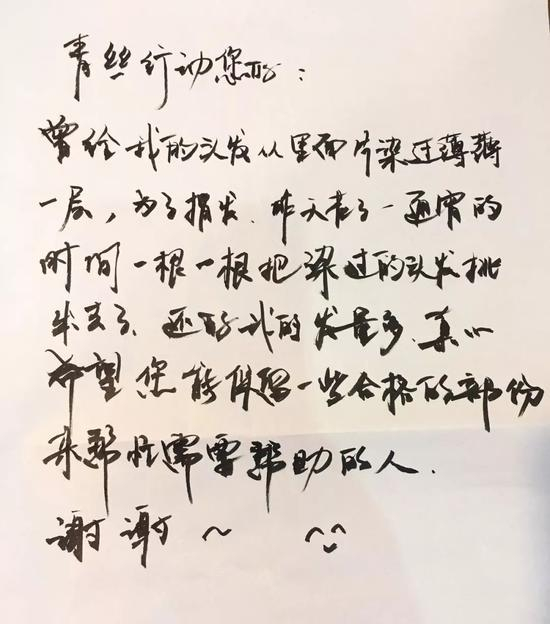 青丝行动您好：
曾经我的头发从里面片染过薄薄
一层，为了捐发．昨天花了一通宵的
时间一根一根把染过的头发挑
出去了．还好我的发量多．真心
希望您能保留一些合格的部份
来帮忙需要帮助的人．
谢谢～ ^‿^